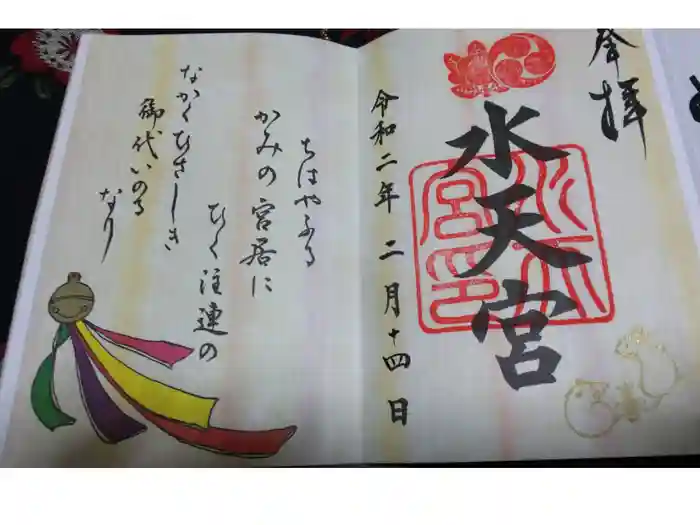 奉拝
水天宮
水天宮印
令和二年 二月十四日
ちはやふる
かみの宮居に
ひく注連の
なかくひさしき
御代いのる
なり